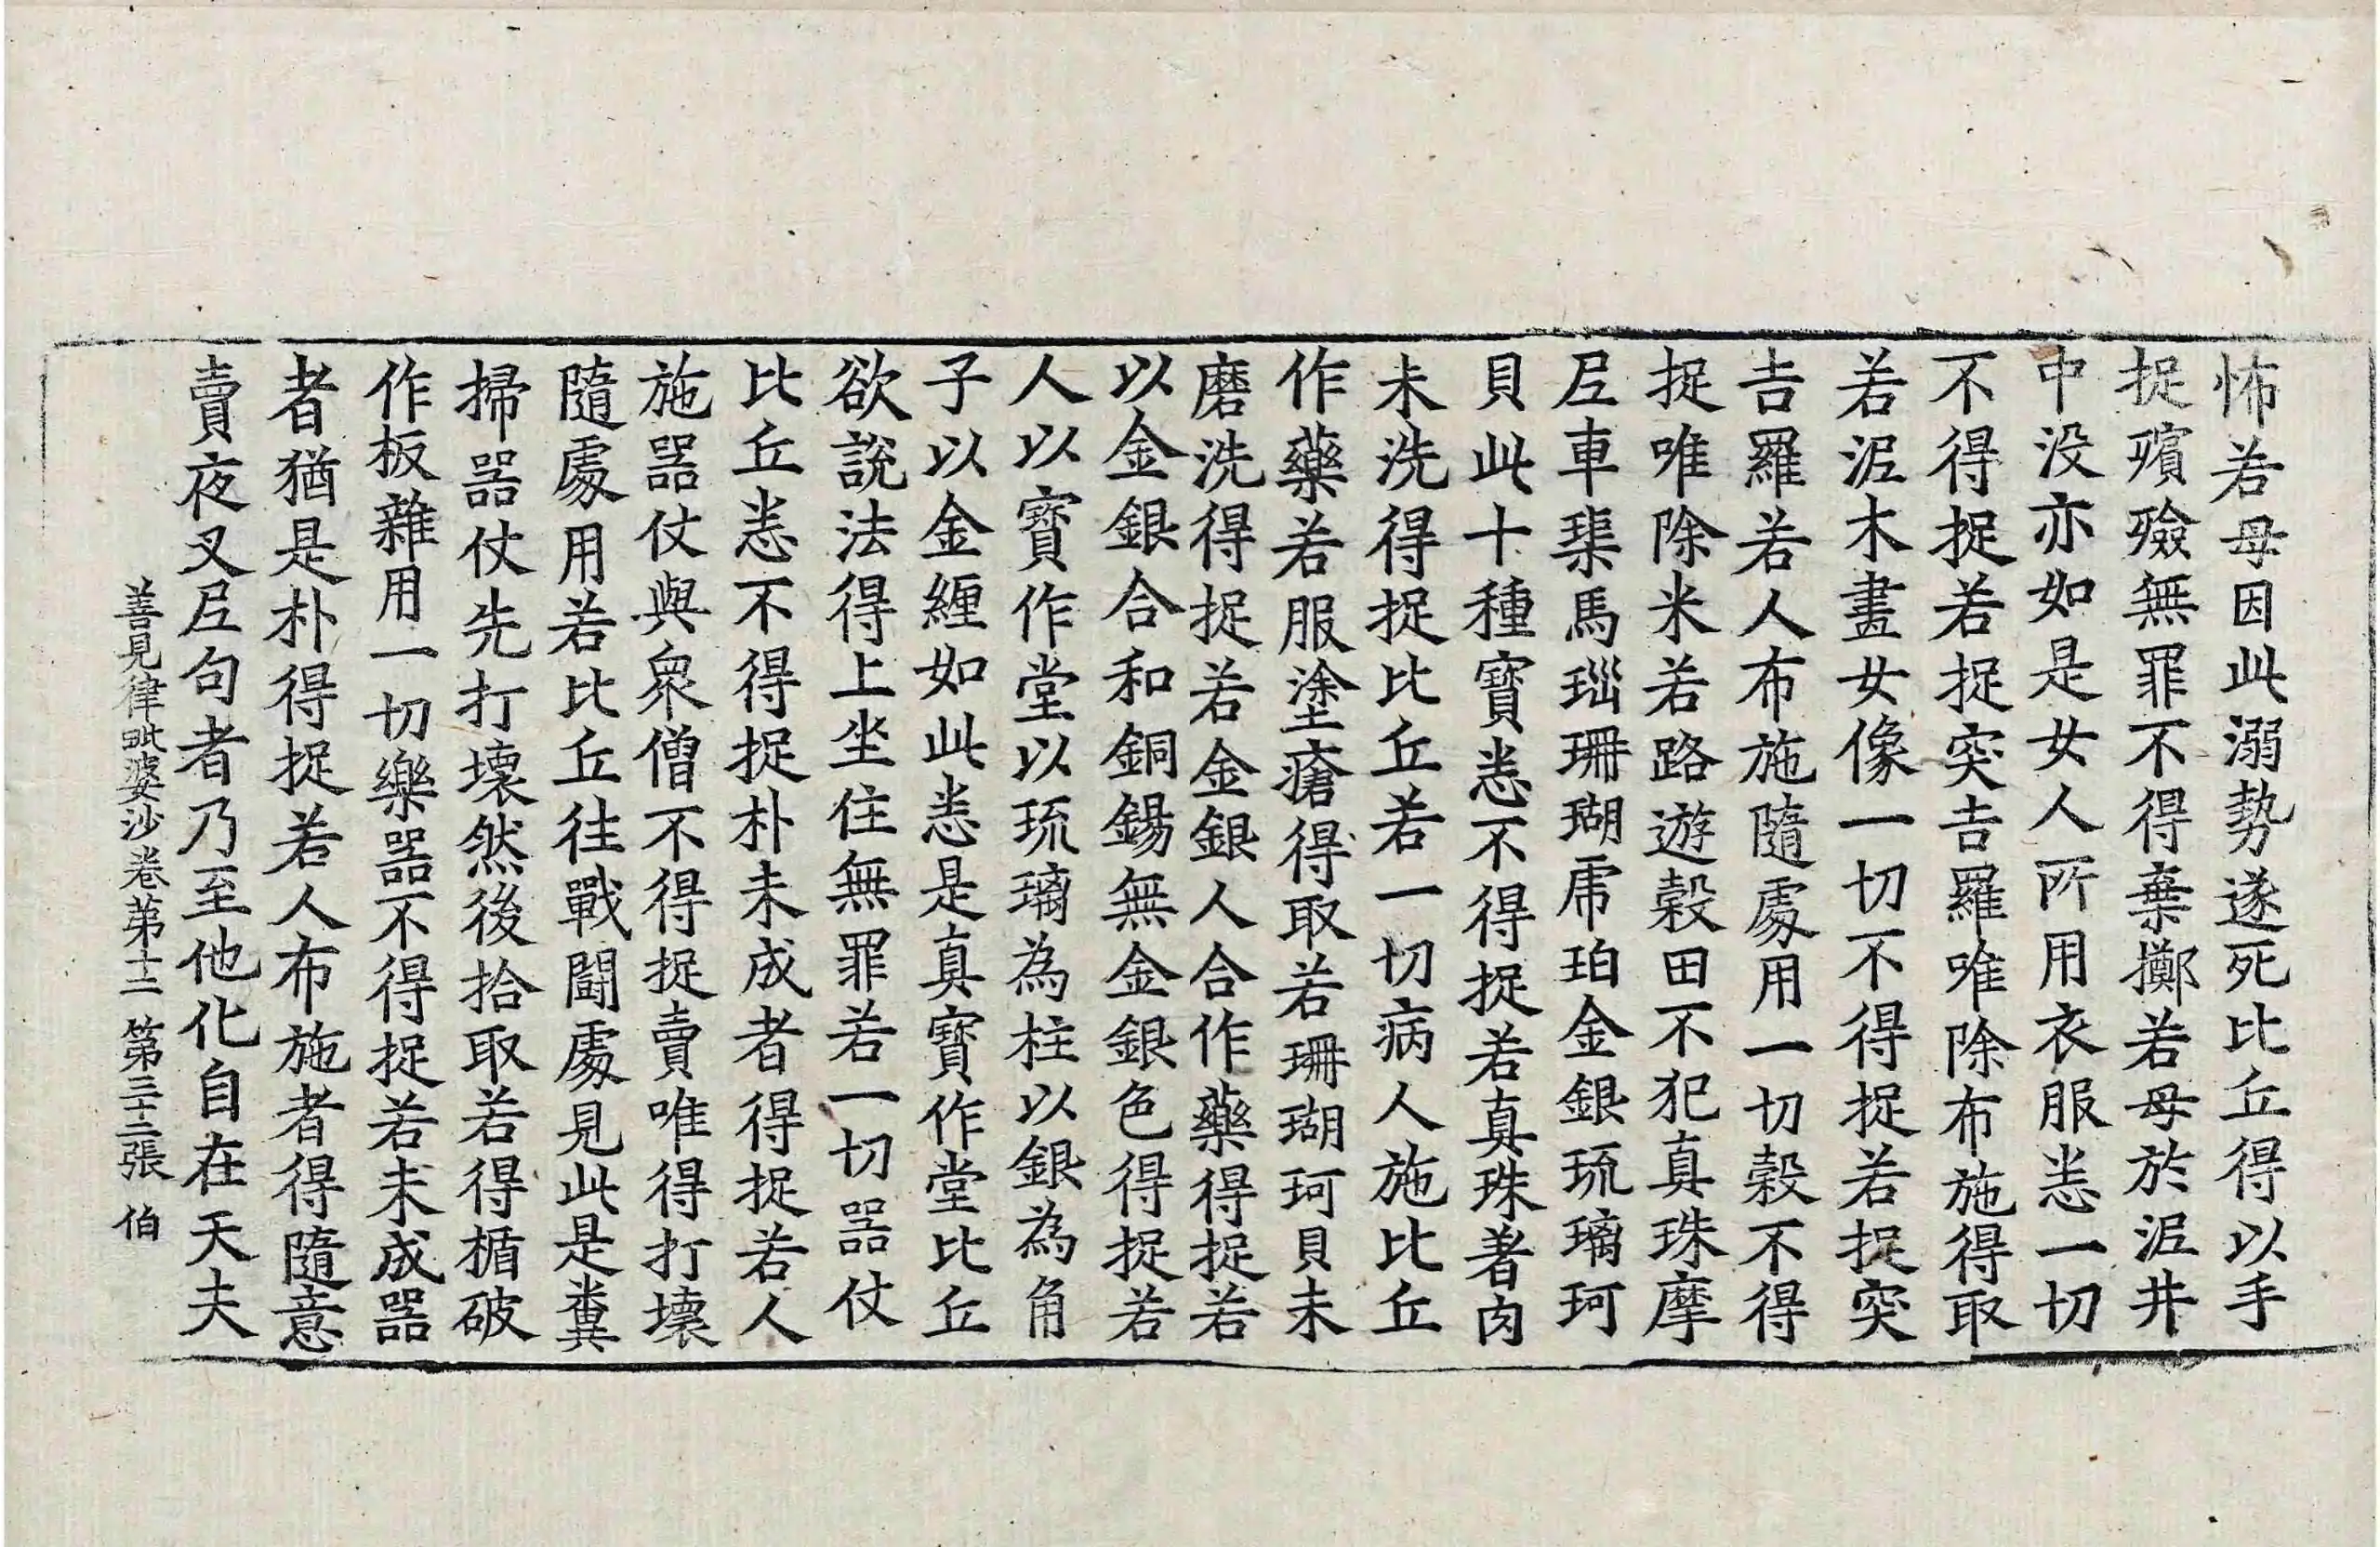 怖若母因此溺勢遂死比丘得以手
捉殯殮無罪不得棄擲若母於泥井
中没亦如是女人所用衣服悉一切
不得捉若捉突吉羅唯除布施得取
若泥木畫女像一切不得捉若捉突
吉羅若人布施隨處用一切穀不得
捉唯除米若路遊穀田不犯真珠摩
尼車𤦲馬瑙珊瑚虎珀金銀琉璃珂
貝此十種寶悉不得捉若真珠著肉
未洗得捉比丘若一切病人施比丘
作藥若服塗瘡得取若珊瑚珂貝未
磨洗得捉若金銀人合作藥得捉若
以金銀合和銅錫無金銀色得捉若
人以寶作堂以琉璃為柱以銀為角
子以金纏如此悉是真寶作堂比丘
欲說法得上坐住無罪若一切器仗
比丘悉不得捉朴未成者得捉若人
施器仗與衆僧不得捉賣唯得打壞
隨處用若比丘往戰鬪處見此是糞
掃器仗先打壞然後拾取若得楯破
作板雜用一切樂器不得捉若未成器
者猶是朴得捉若人布施者得隨意
賣夜叉尼句者乃至他化自在天夫
善見律毗婆沙卷第十二 第三十二張 伯